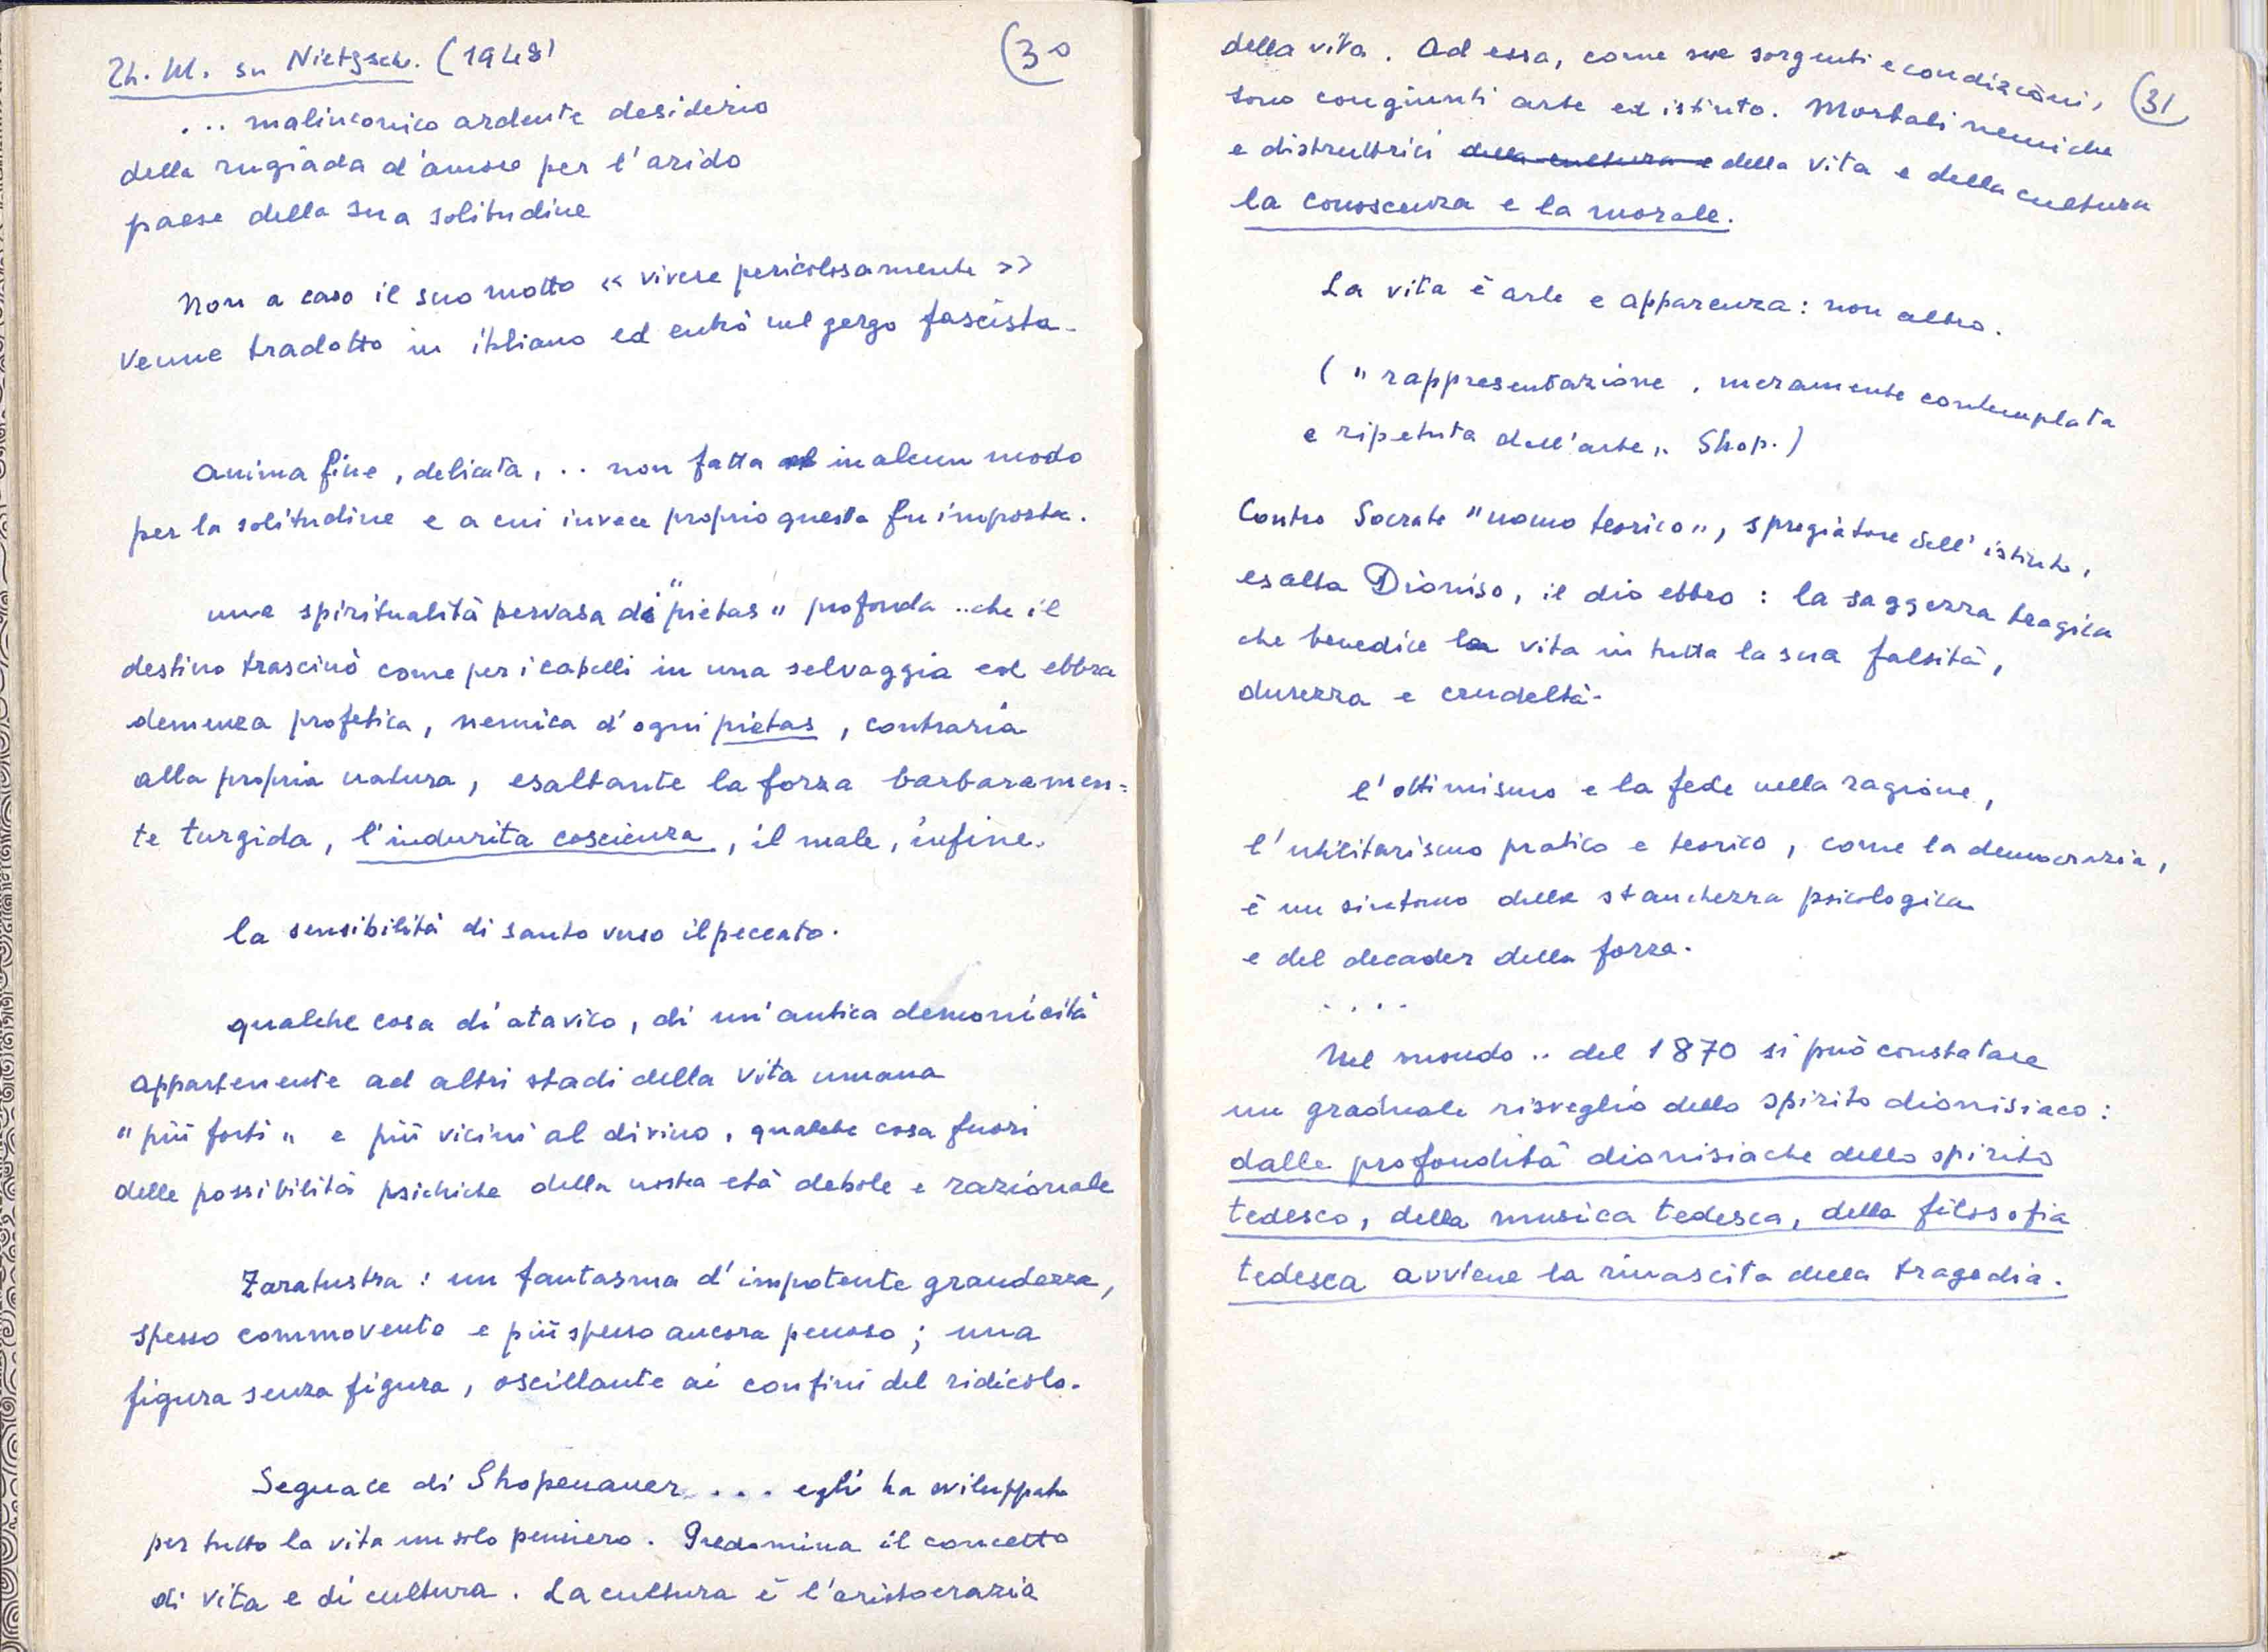 Th. M. su Nietzsch. (1948)
(30
... malinconico ardente desiderio
della rugiada d'amore per l'arido
paese della sua solitudine
Non a caso il suo motto « vivere pericolosamente »
venne tradotto in italiano ed entrò nel gergo fascista.
Anima fine, delicata, .. non fatta in alcun modo
per la solitudine e a cui invece proprio questa fu imposta.
una spiritualità pervasa di "pietas" profonda .. che il
destino trascinò come per i capelli in una selvaggia ed ebbra
demenza profetica, nemica d'ogni pietas, contraria
alla propria natura, esaltante la forza barbaramen=
te turgida, l'indurita coscienza, il male, infine.
la sensibilità di santo verso il peccato.
qualche cosa di atavico, di un'antica demonicità
appartenente ad altri stadi della vita umana
"più forti" e più vicini al divino, qualche cosa fuori
delle possibilità psichiche della nostra età debole e razionale
Zaratustra: un fantasma d'impotente grandezza,
spesso commovente e più spesso ancora penoso; una
figura senza figura, oscillante ai confini del ridicolo.
Seguace di Shopenauer .... egli ha sviluppato
per tutto la vita un solo pensiero. Predomina il concetto
di vita e di cultura. La cultura è l'aristocrazia
(31
della vita. Ad essa, come sue sorgenti e condizioni,
sono congiunti arte ed istinto. Mortali nemiche
e distruttrici della cultura e della vita e della cultura
la conoscenza e la morale.
La vita è arte e apparenza: non altro.
("rappresentazione, meramente contemplata
e ripetuta dell'arte" Shop.)
Contro Socrate "uomo teorico", spregiatore dell'istinto,
esalta Dioniso, il dio ebbro: la saggezza tragica
che benedice la vita in tutta la sua falsità,
durezza e crudeltà.
l'ottimismo e la fede nella ragione,
l'utilitarismo pratico e teorico, come la democrazia,
è un sintomo della stanchezza psicologica
e del decader della forza.
....
Nel mondo .. del 1870 si può constatare
un graduale risveglio dello spirito dionisiaco:
dalle profondità dionisiache dello spirito
tedesco, della musica tedesca, della filosofia
tedesca avviene la rinascita della tragedia.